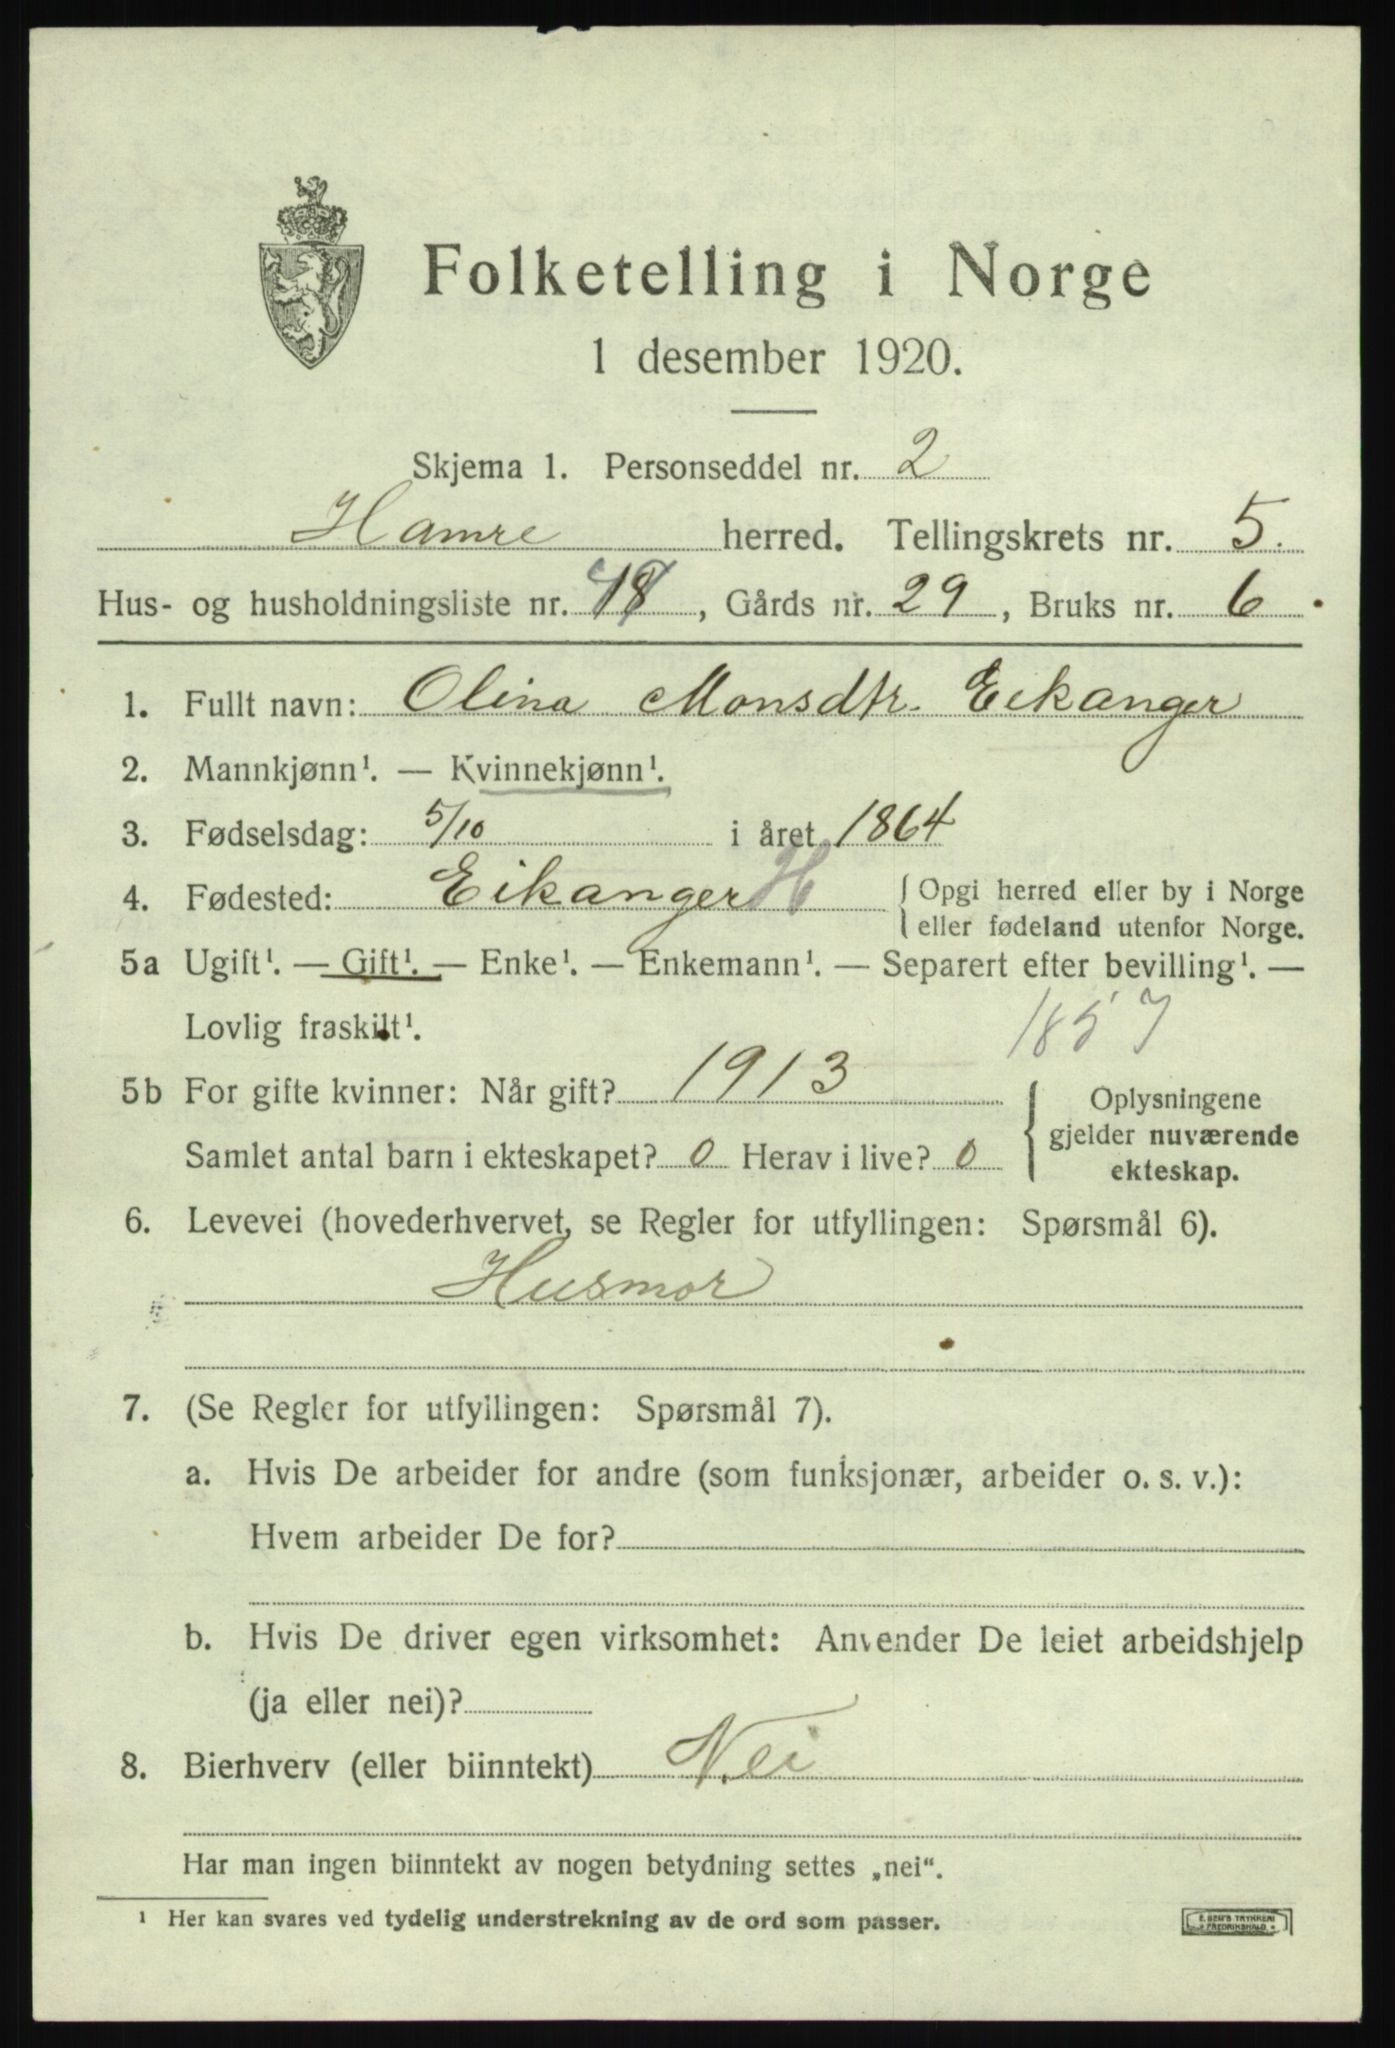 Folketelling i Norge
1 desember 1920.
Skjema 1. Personseddel nr. 2
Hamre herred. Tellingskrets nr. 5.
Hus- og husholdningsliste nr. , Gårds nr. 29, Bruks nr. 6
1. Fullt navn: Olina Monsdtr. Eikanger
2. Mannkjønn¹. — Kvinnekjønn¹.
3. Fødselsdag: 5/10 i året 1864
4. Fødested: Eikanger H { Opgi herred eller by i Norge
eller fødeland utenfor Norge.
5a Ugift¹. — Gift¹. — Enke¹. — Enkemann¹. — Separert efter bevilling¹. —
Lovlig fraskilt¹. 1857
5b For gifte kvinner: Når gift? 1913 { Oplysningene
gjelder nuværende
Samlet antal barn i ekteskapet? 0 Herav i live? 0 ekteskap.
6. Levevei (hovederhvervet, se Regler for utfyllingen: Spørsmål 6).
Husmor
7. (Se Regler for utfyllingen: Spørsmål 7).
a. Hvis De arbeider for andre (som funksjonær, arbeider o. s. v.):
Hvem arbeider De for?
b. Hvis De driver egen virksomhet: Anvender De leiet arbeidshjelp
(ja eller nei)?
8. Bierhverv (eller biinntekt) Nei
Har man ingen biinntekt av nogen betydning settes „nei“.
¹ Her kan svares ved tydelig understrekning av de ord som passer.